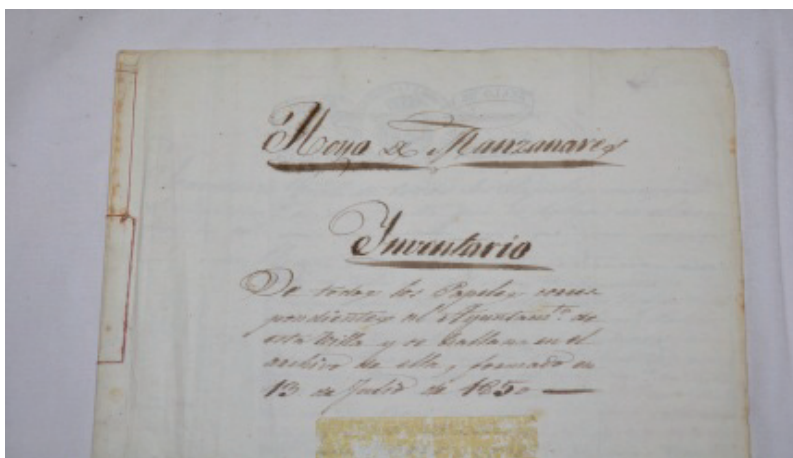 Hoyo de Manzanares
Inventario
De todos los Papeles corres-
pondientes al Ayuntamto. de
esta Villa y se hallan en el
archivo de ella, formado en
13 de Julio de 1850 —